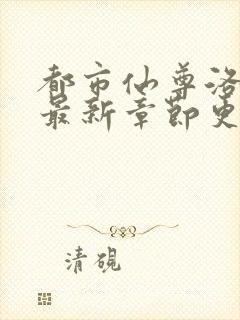 都市仙尊洛
最新章节更
清砚